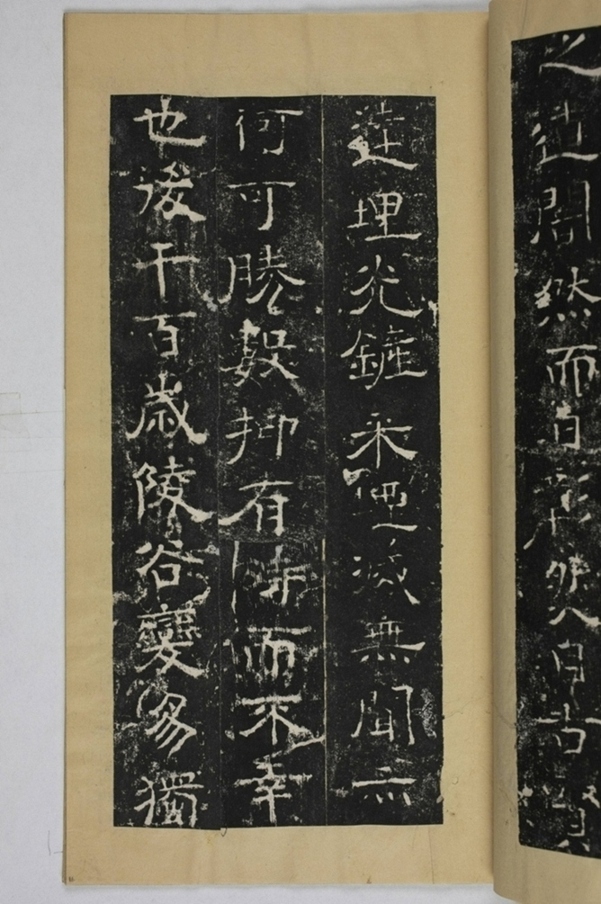 之道闇然而日彰然自古賢
達埋光鏟采湮滅無聞亦
何可勝數抑有時而不幸
也後千百歲陵谷變易獨